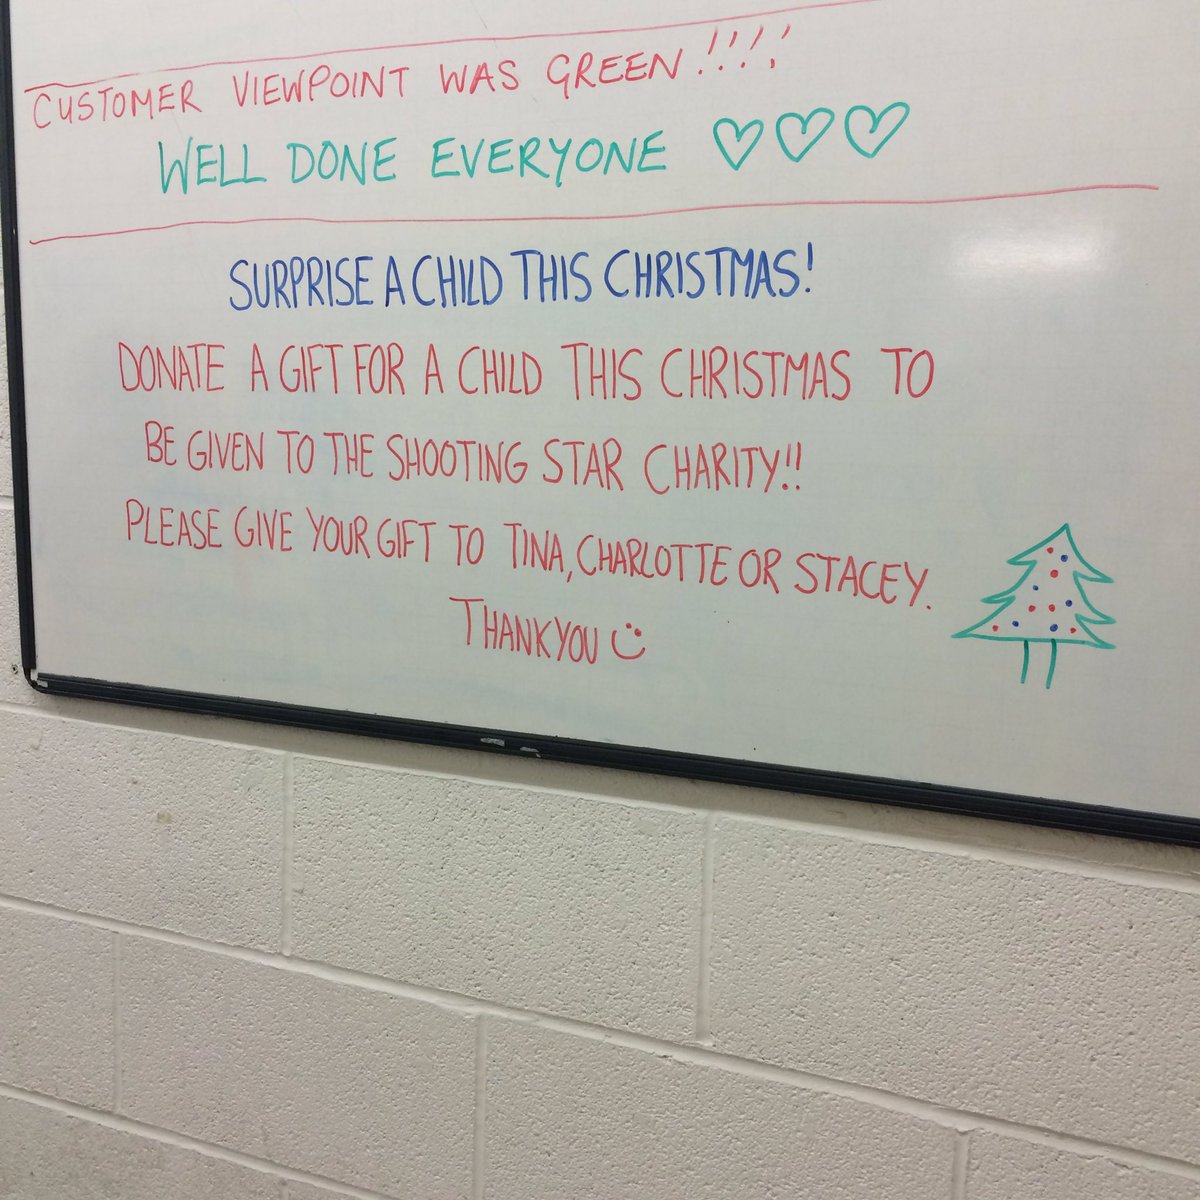 CUSTOMER VIEWPOINT WAS GREEN!!!!
WELL DONE EVERYONE ♡♡♡
SURPRISE A CHILD THIS CHRISTMAS!
DONATE A GIFT FOR A CHILD THIS CHRISTMAS TO
BE GIVEN TO THE SHOOTING STAR CHARITY!!
PLEASE GIVE YOUR GIFT TO TINA, CHARLOTTE OR STACEY.
THANKYOU :)